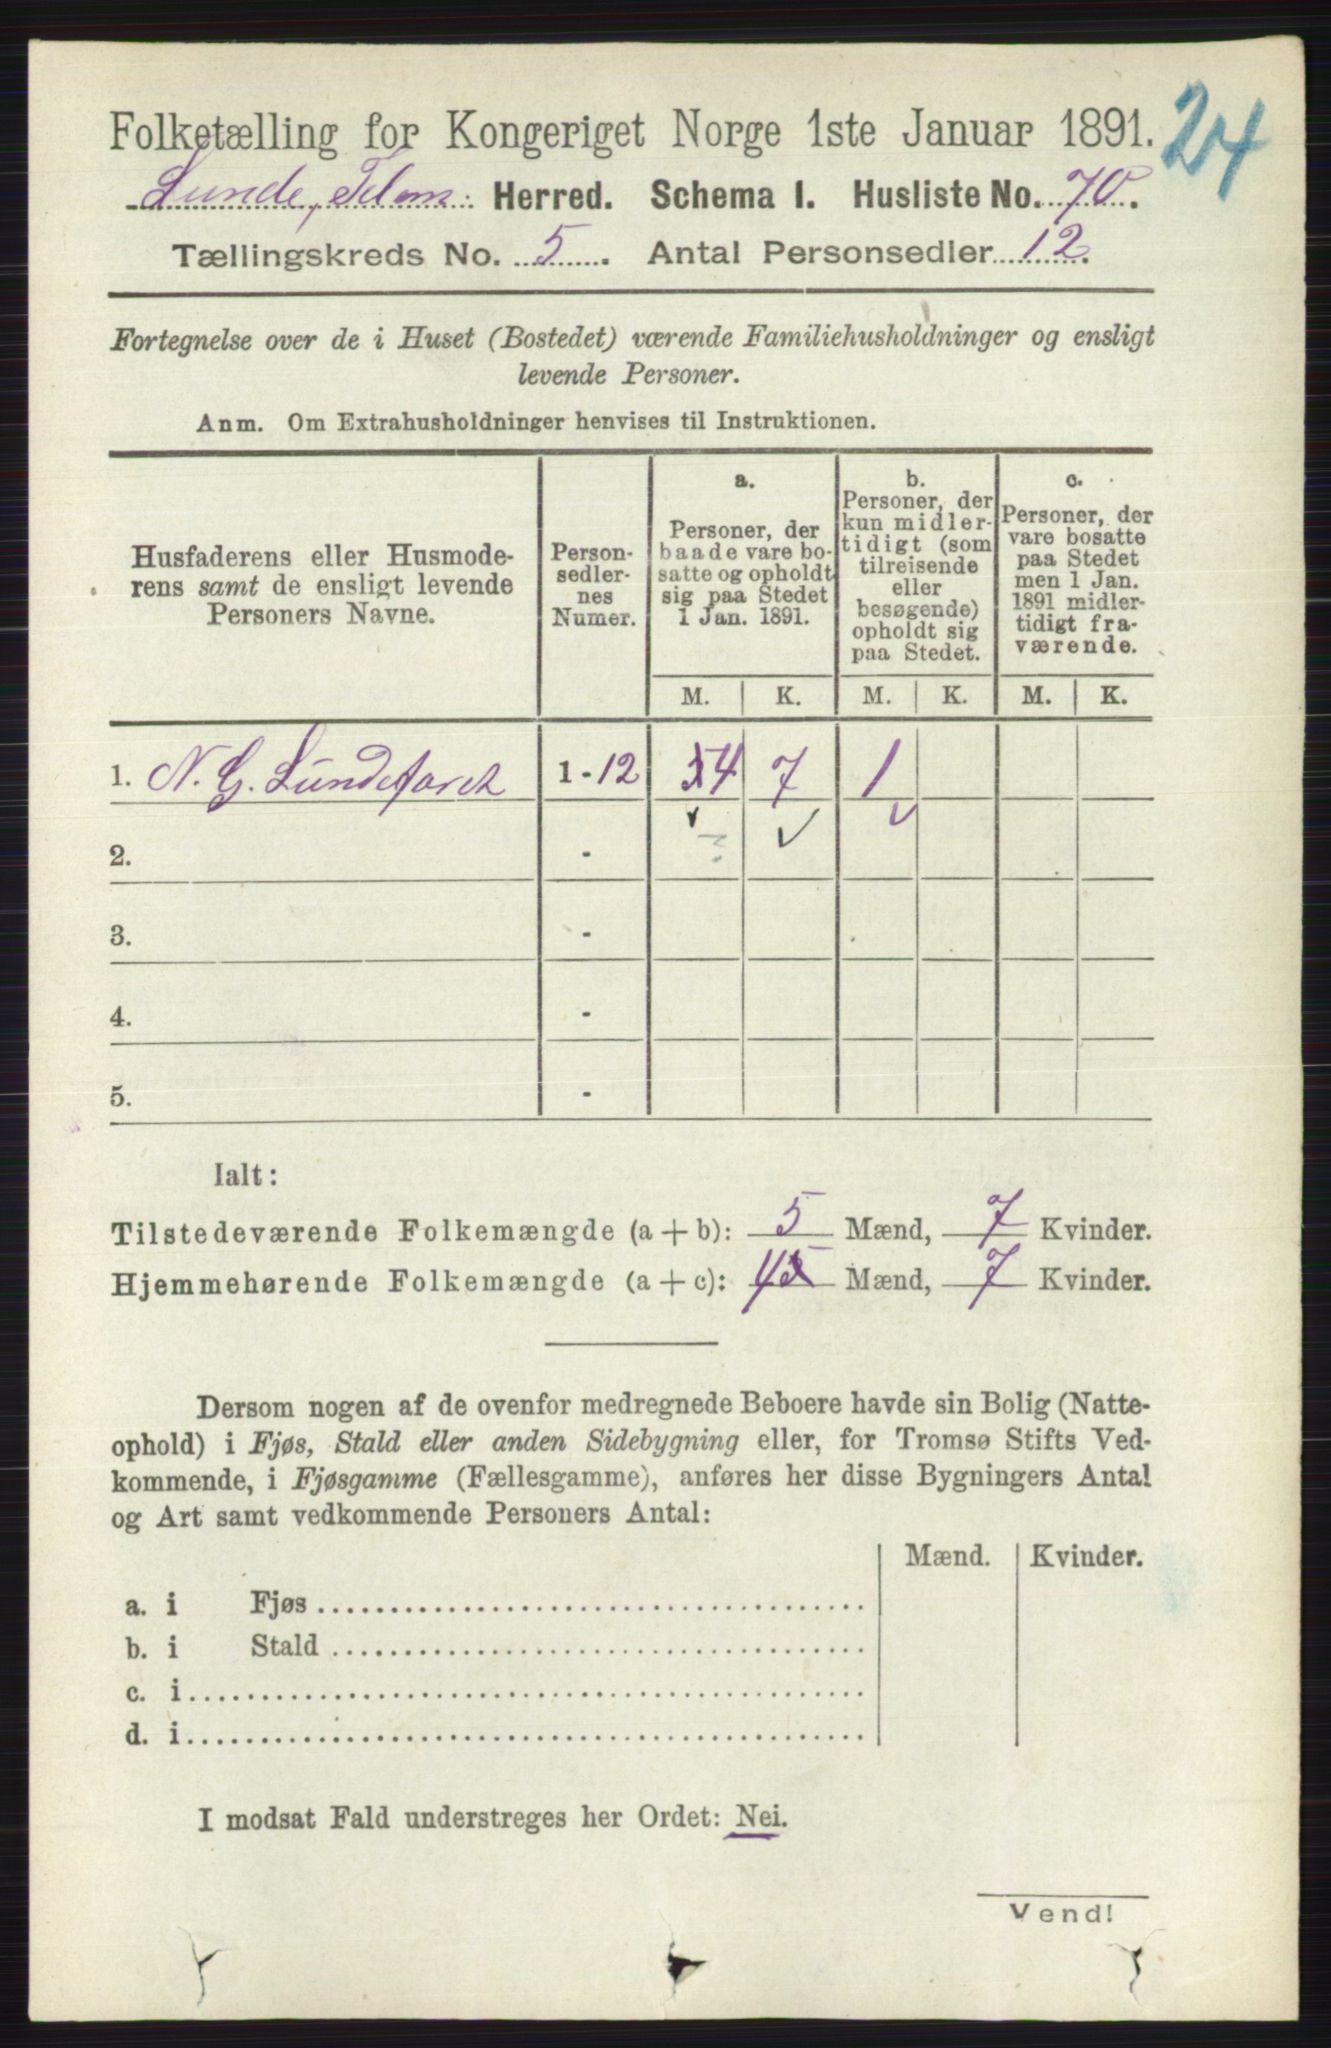 Folketælling for Kongeriget Norge 1ste Januar 1891. 24
Lunde, Telem: Herred. Schema I. Husliste No. 70.
Tællingskreds No. 5. Antal Personsedler 12.
Fortegnelse over de i Huset (Bostedet) værende Familiehusholdninger og ensligt
levende Personer.
Anm. Om Extrahusholdninger henvises til Instruktionen.
Husfaderens eller Husmode-
rens samt de ensligt levende
Personers Navne.
Person-
sedler-
nes
Numer.
a.
Personer, der
baade vare bo-
satte og opholdt
sig paa Stedet
1 Jan. 1891.
b.
Personer, der
kun midler-
tidigt (som
tilreisende
eller
besøgende)
opholdt sig
paa Stedet.
c.
Personer, der
vare bosatte
paa Stedet
men 1 Jan.
1891 midler-
tidigt fra-
værende.
M. K. M. K. M. K.
1. N. G. Lundefaret 1-12 4 7 1
2. -
3. -
4. -
5. -
Ialt:
Tilstedeværende Folkemængde (a + b): 5 Mænd, 7 Kvinder.
Hjemmehørende Folkemængde (a + c): 4 Mænd, 7 Kvinder.
Dersom nogen af de ovenfor medregnede Beboere havde sin Bolig (Natte-
ophold) i Fjøs, Stald eller anden Sidebygning eller, for Tromsø Stifts Ved-
kommende, i Fjøsgamme (Fællesgamme), anføres her disse Bygningers Antal
og Art samt vedkommende Personers Antal:
Mænd. Kvinder.
a. i Fjøs
b. i Stald
c. i
d. i
I modsat Fald understreges her Ordet: Nei.
Vend!